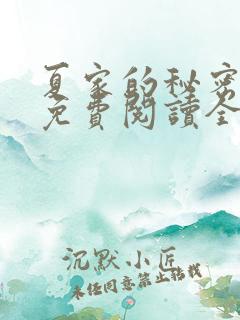 夏家的秘密
免費閱讀全
沉默小匠
未经同意禁止转载